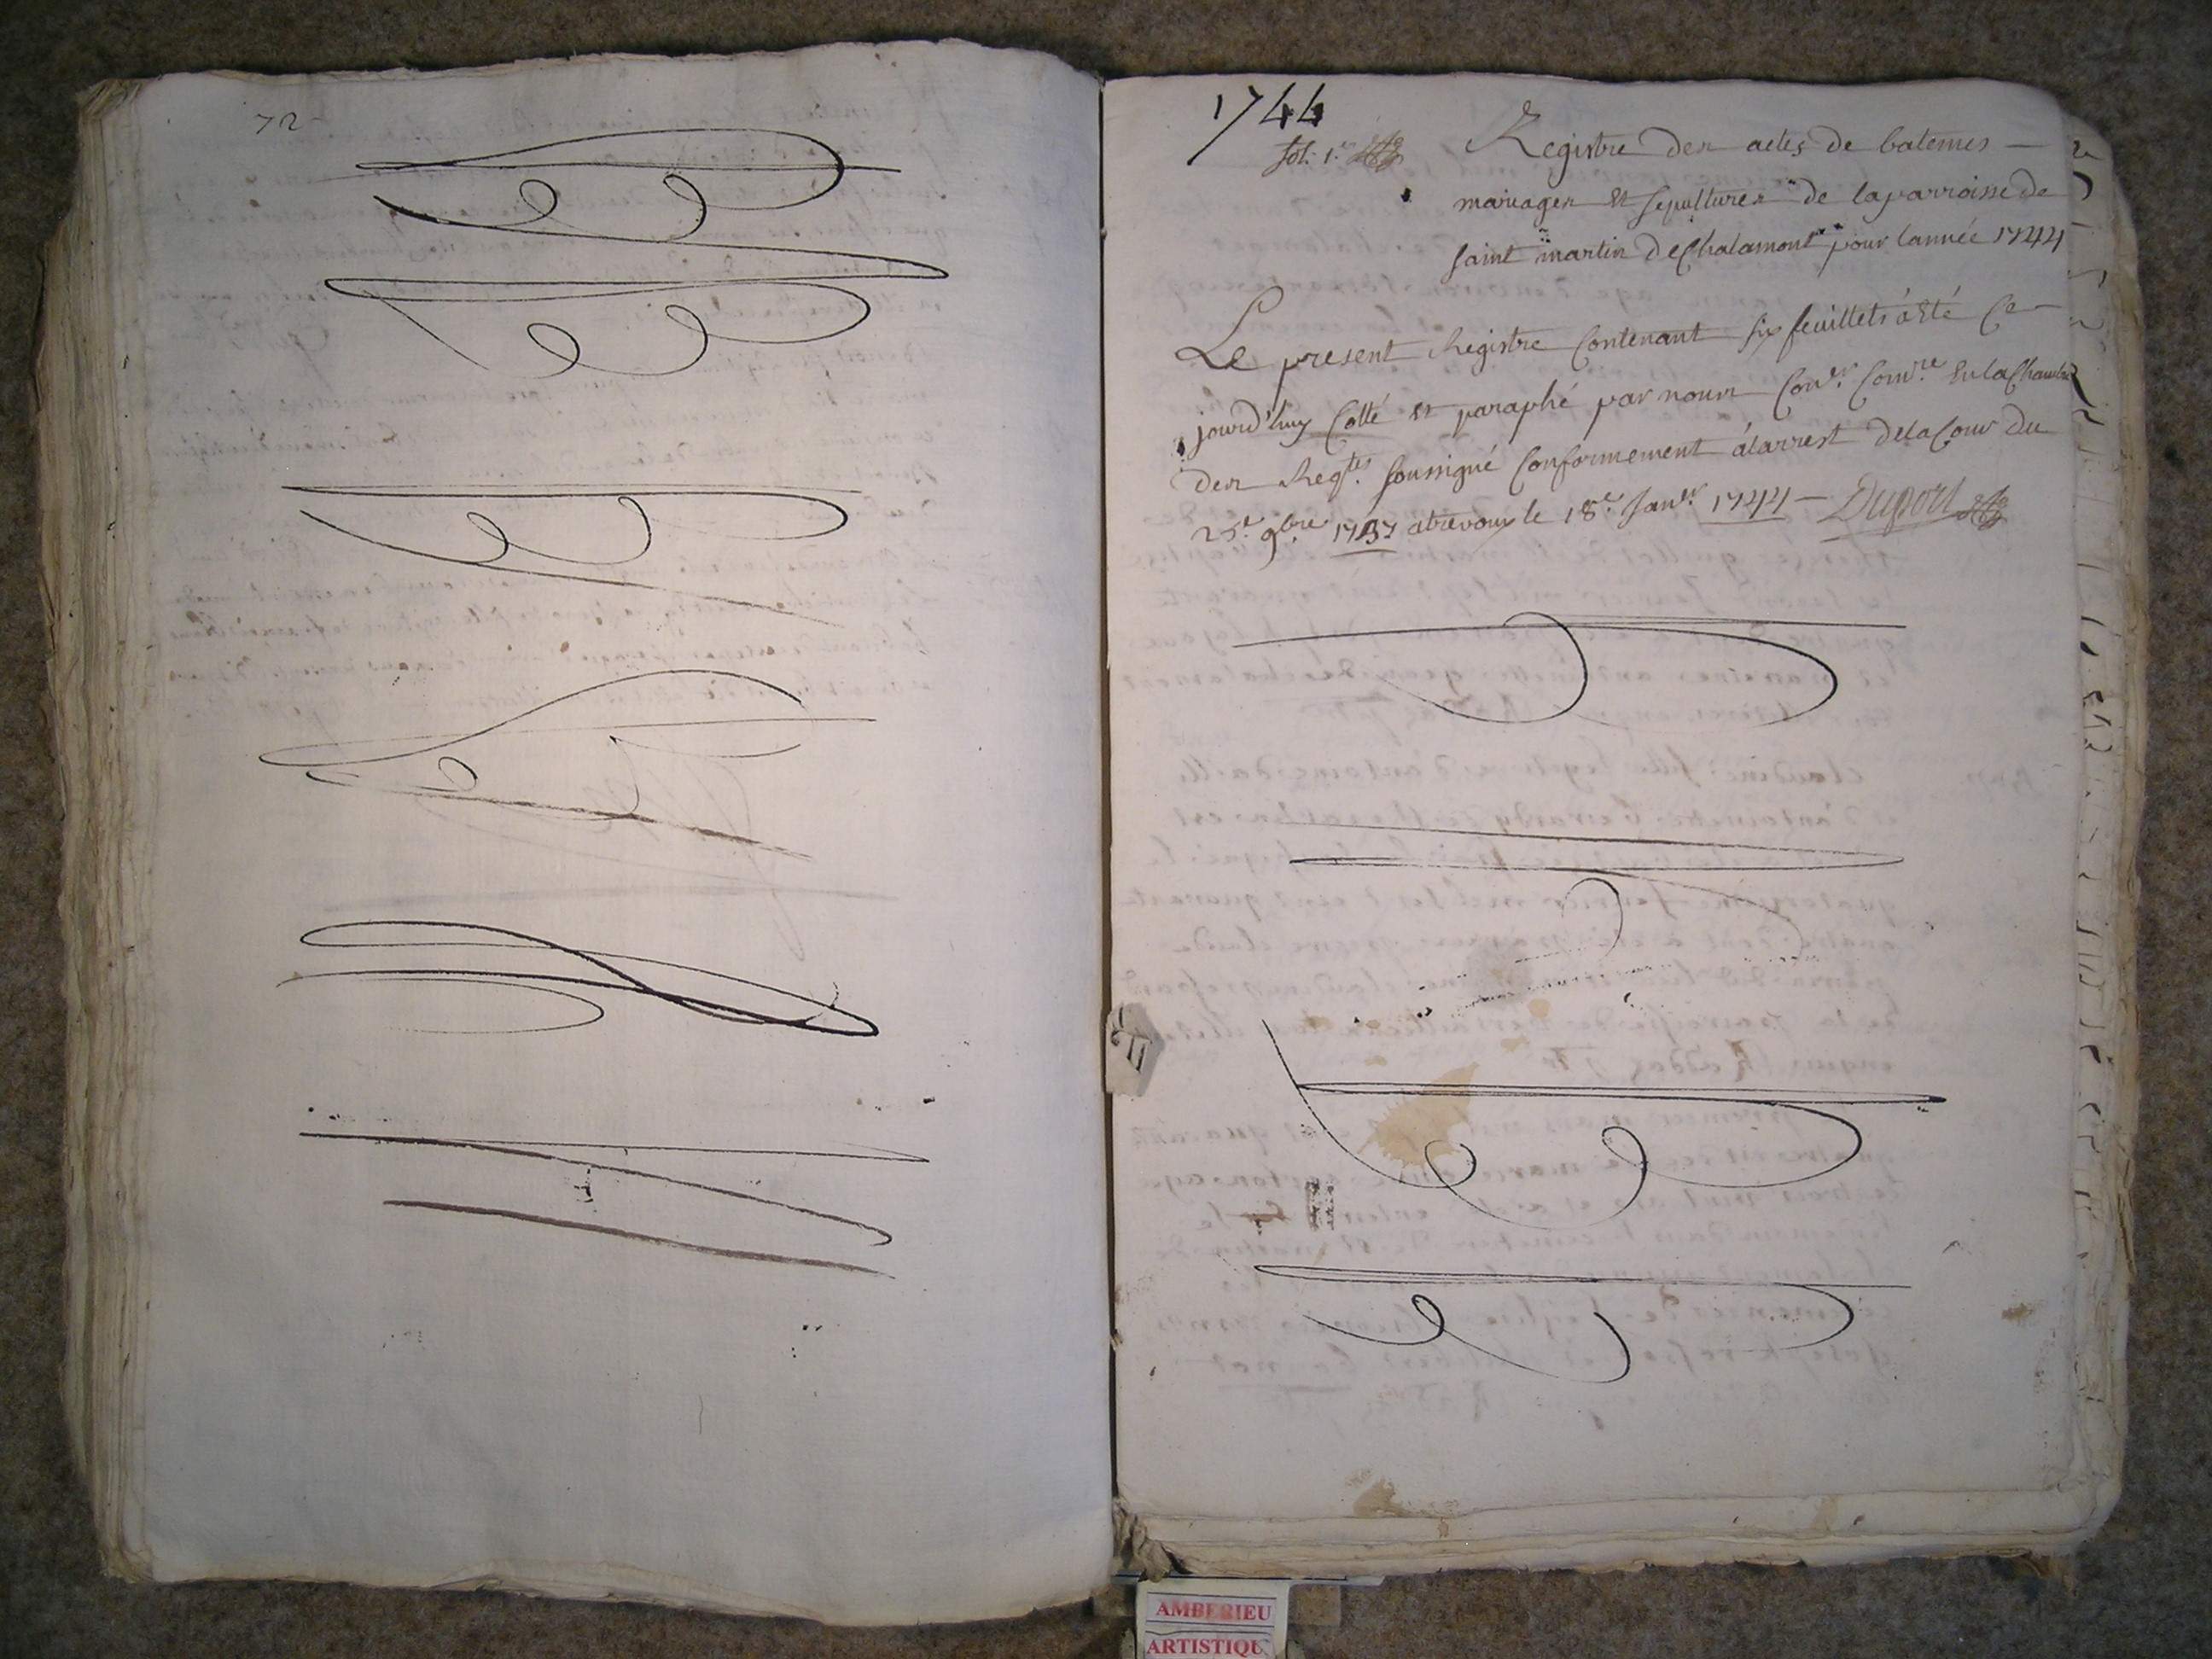 72
1744
fol. 1.er
Registre des actes de batemes
mariages et sepultures de la parroisse de
saint martin de Chalamont pour lannée 1744
Le present Registre Contenant six feuillets à eté Ce
jourd'huy Cotté et paraphé par nous Con.er Com.re En la Chambre
des Req.tes soussigné Conformement à larrest de la Cour du
25.e 9bre 1737 a trevoux le 18.e Jan.er 1744 Duport
AMBERIEU
ARTISTIQU